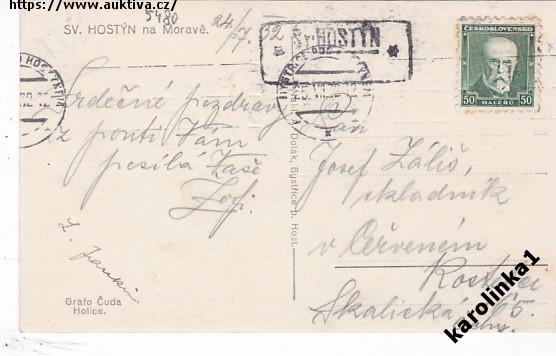 https://www.auktiva.cz/
SV. HOSTÝN na Moravě.
5480
24/7 32
SV. HOSTÝN
ČESKOSLOVENSKO
50 HALÉŘŮ 50
Srdečné pozdravy
z pouti Vám
posílá Vaše
Žofi.
Pan
Josef Záliš,
skladník
v Červeném
Kostelci
Skalická
Dolák, Bystřice p. Host.
Grafo Čuda
Holice.
karolinka1